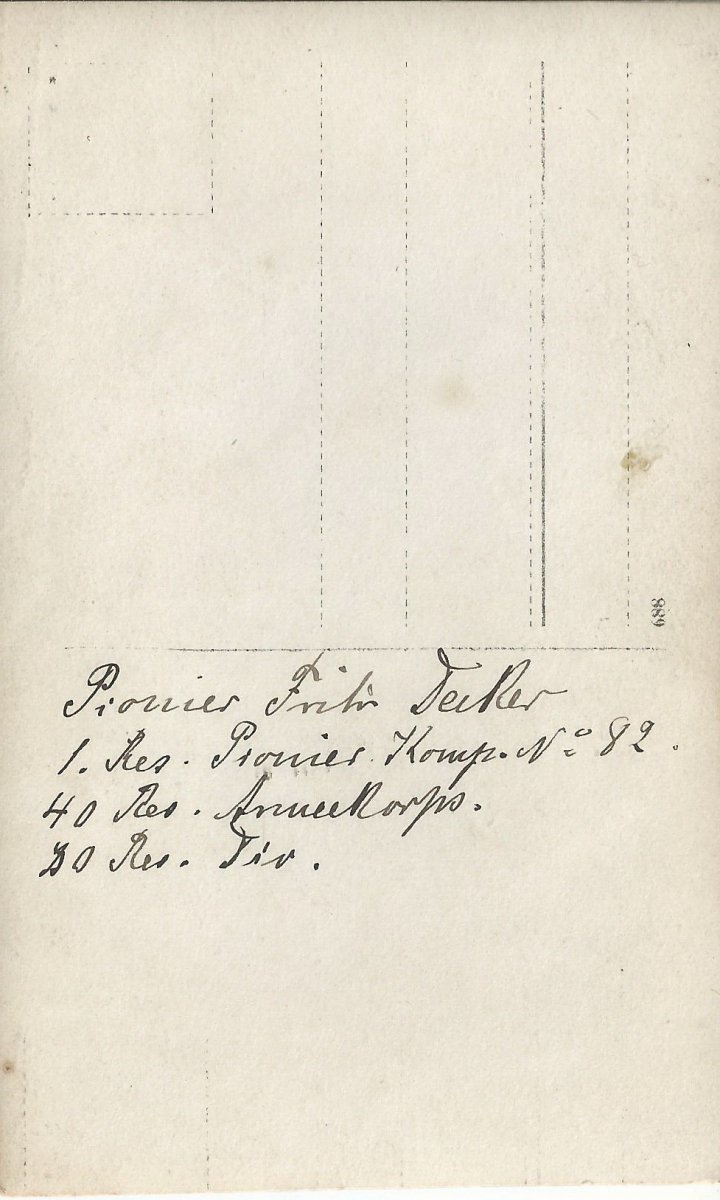 689
Pionier Fritz Decker
1. Res. Pionier. Komp. No 82.
40 Res. Armeekorps.
80 Res. Div.